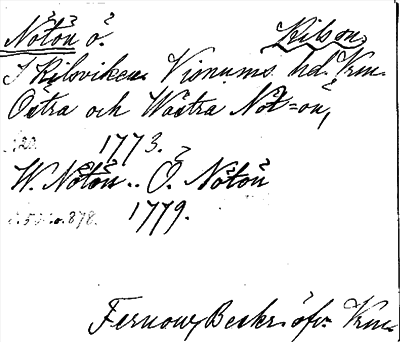 Nötön ö. Kilson.
I Kilsviken. Visnums hd. Vrm.
Östra och Wästra Nöt=ön,
s. 20. 1773.
W. Nötön.. Ö. Nötön
878. 1779.
Fernow, Beskr. öfv. Vrm.